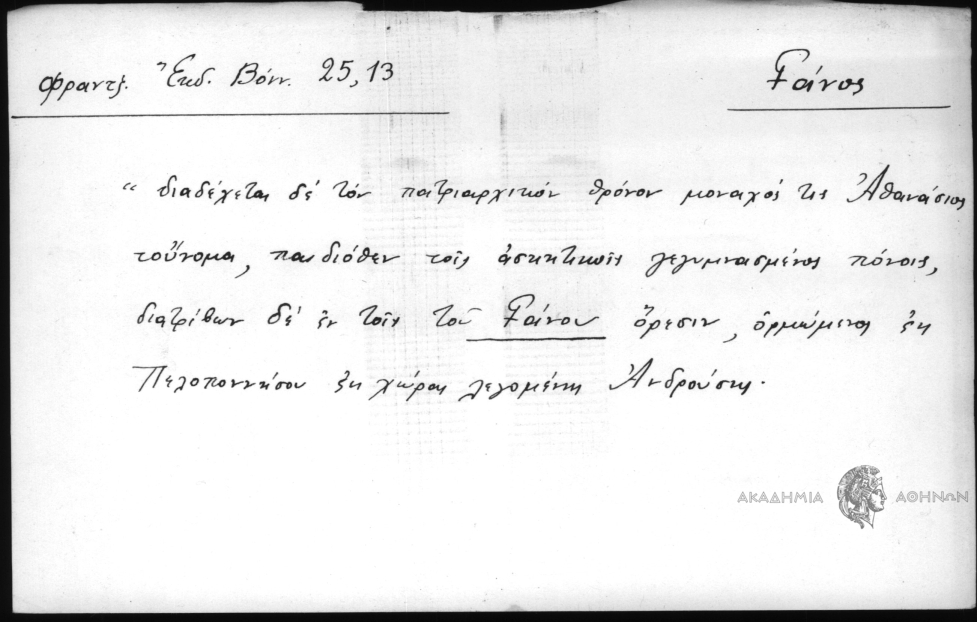 Φραντζ. Ἔκδ. Βόνν. 25,13
Γάνος
“ διαδέχεται δέ τόν πατριαρχικόν θρόνον μοναχός τις Ἀθανάσιος
τοὔνομα, παιδιόθεν τοῖς ἀσκητικοῖς γεγυμνασμένος πόνοις,
διατρίβων δέ ἐν τοῖς τοῦ Γάνου ὄρεσιν, ὁρμώμενος ἐκ
Πελοποννήσου ἐκ χώρας λεγομένης Ἀνδρούσης.
ΑΚΑΔΗΜΙΑ ΑΘΗΝΩΝ